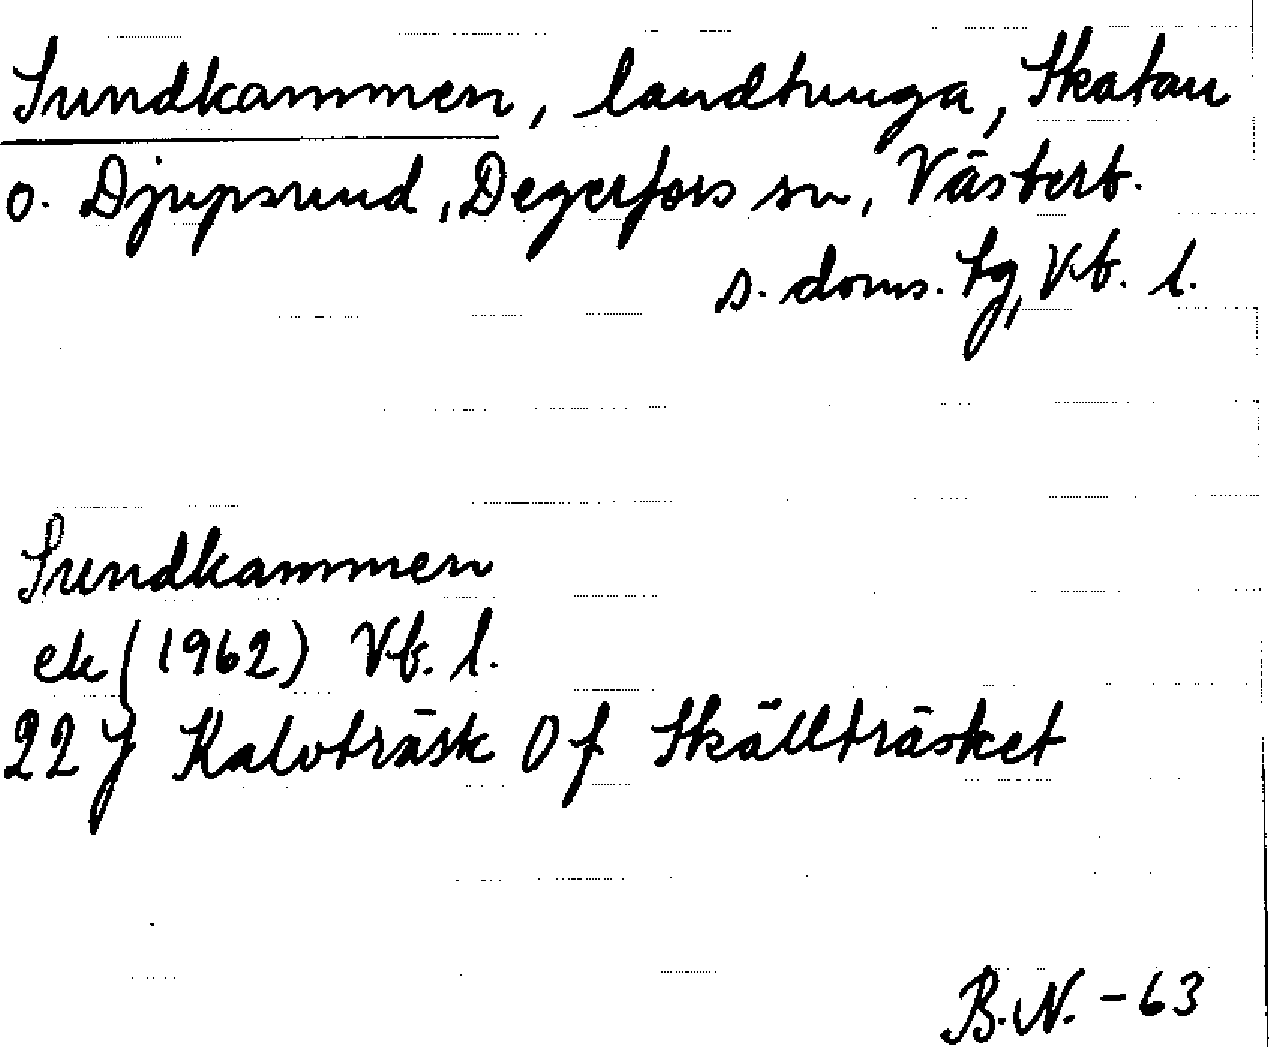 Sundkammen, landtunga, Skatan
o. Djupsund, Degerfors sn, Västerb.
s. doms. tg, Vb. l.
Sundkammen
ek (1962) Vb. l.
22 J Kalvträsk 0 f Skällträsket
B.N. -63